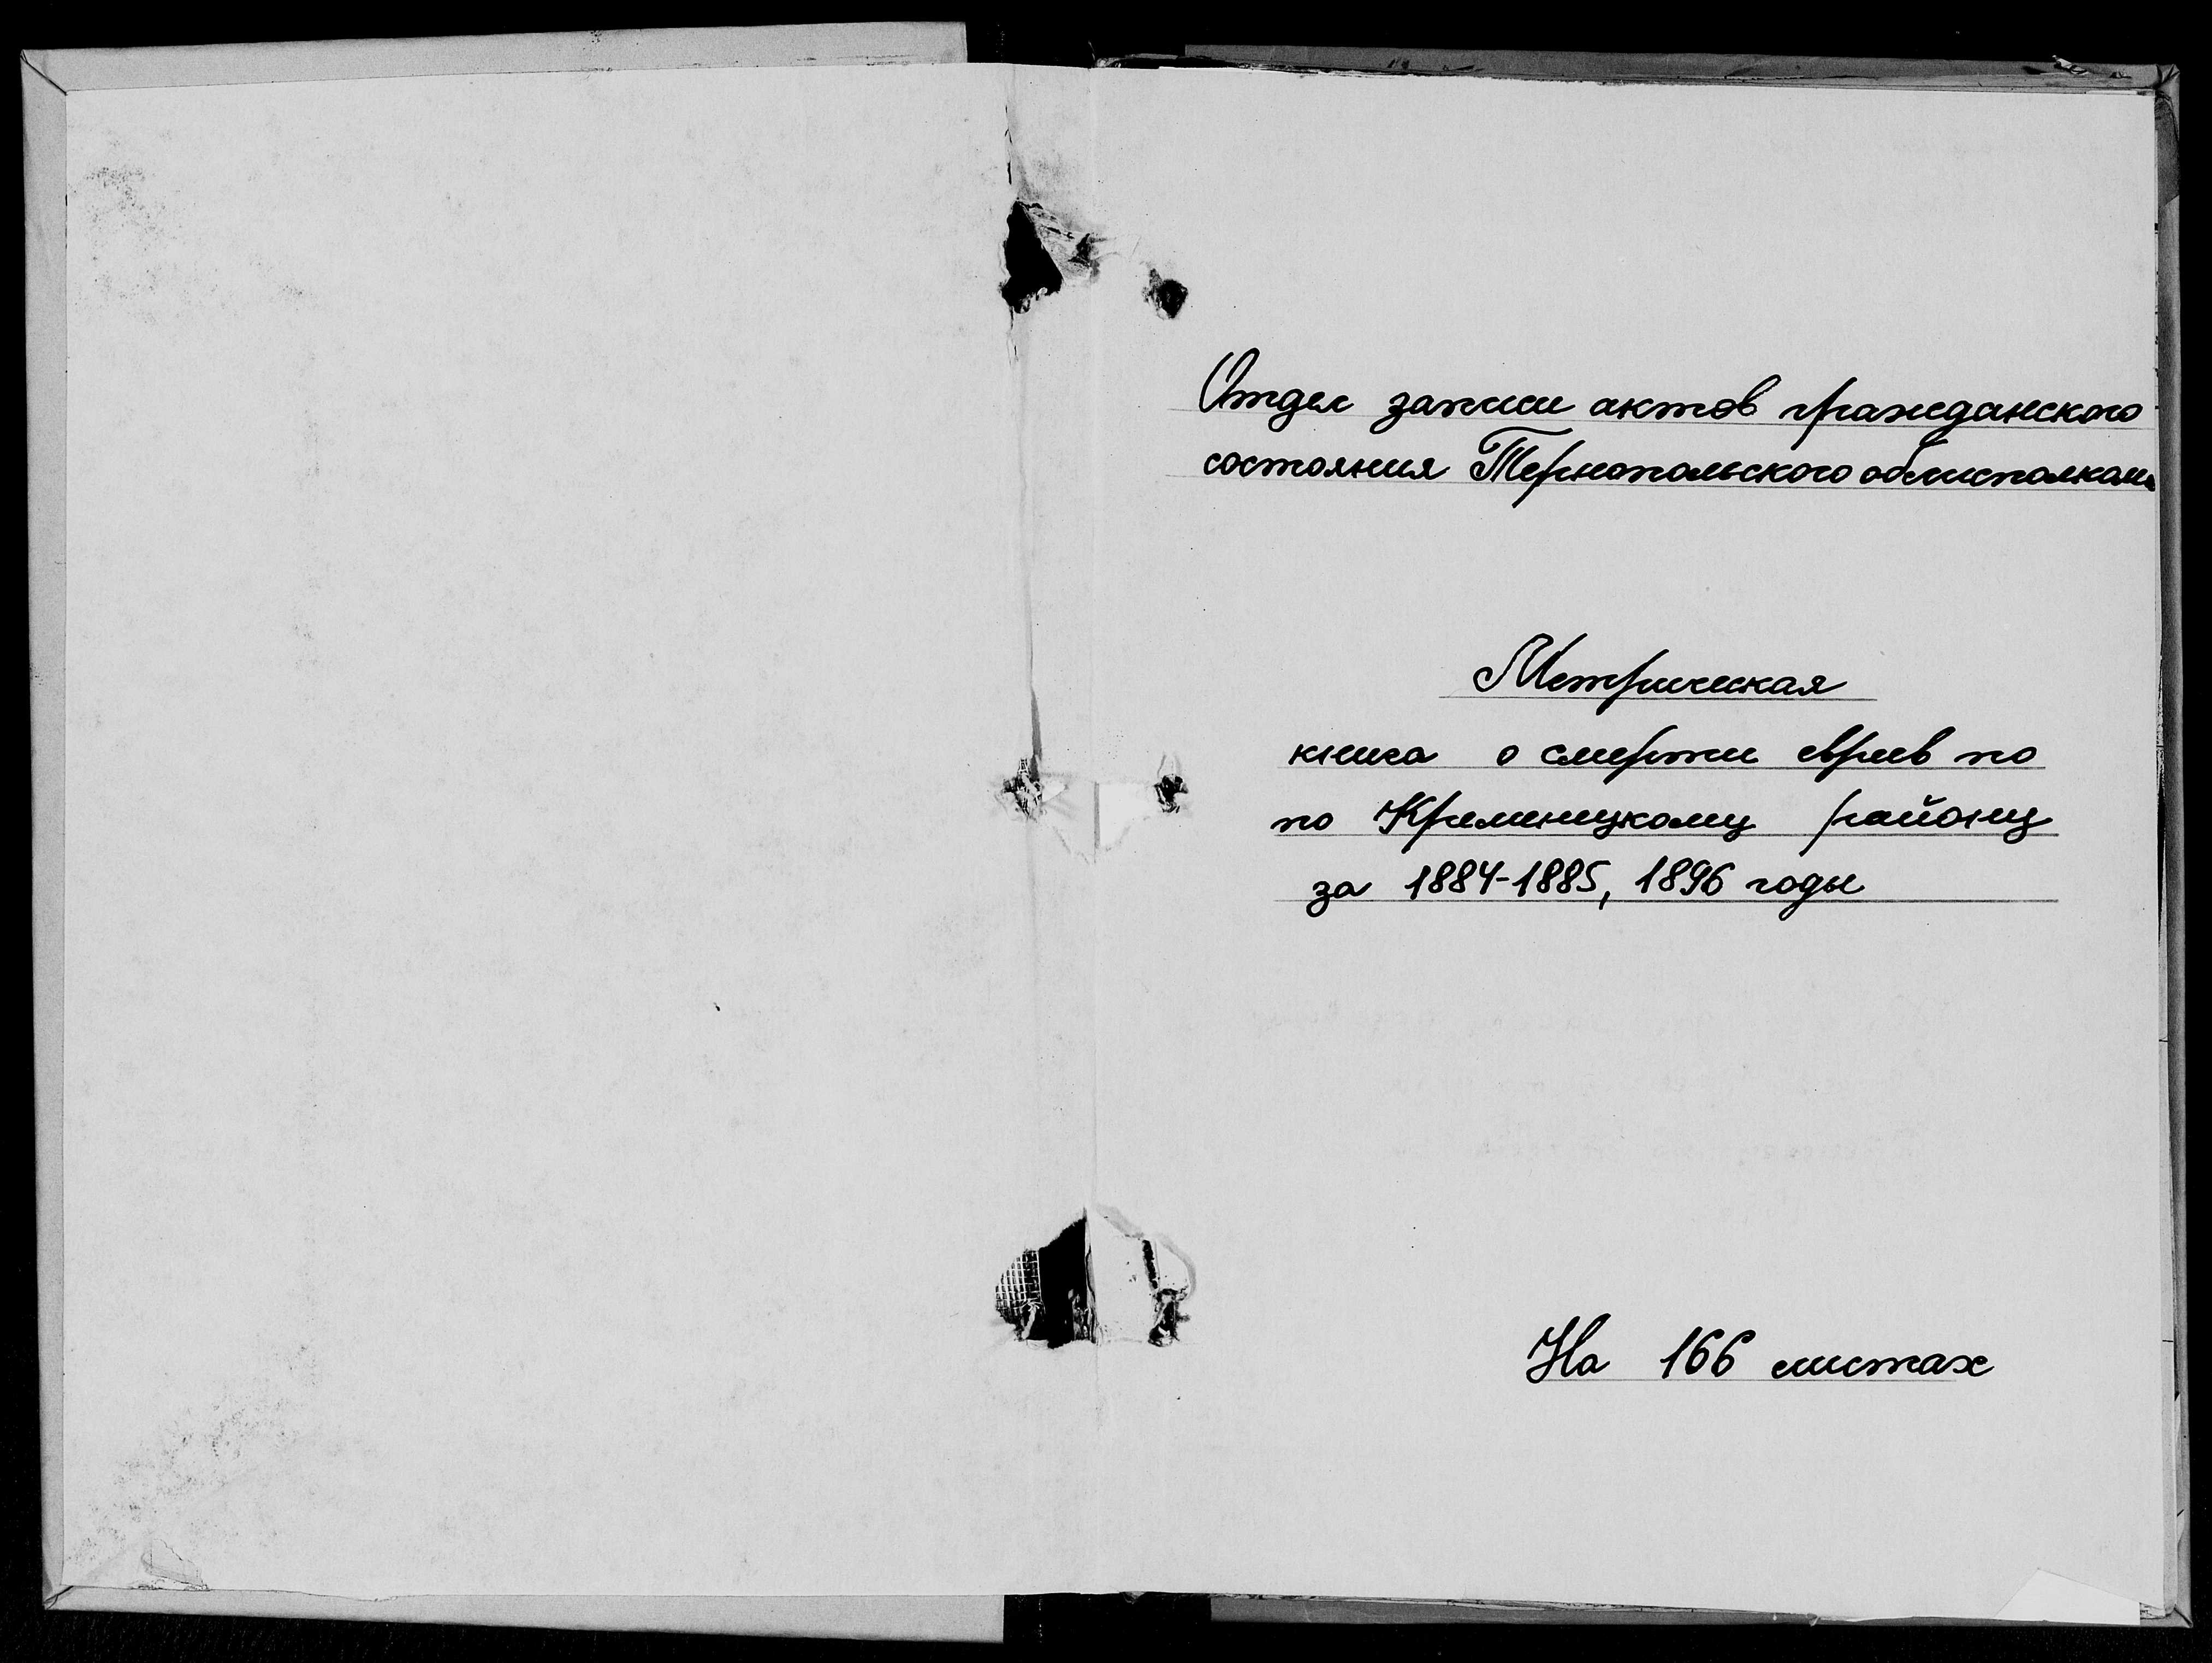 Отдел записи актов гражданского
состояния Тернопольского облисполкома
Метрическая
книга о смерти евреев по
по Кременецкому району
за 1884-1885, 1896 годы
На 166 листах